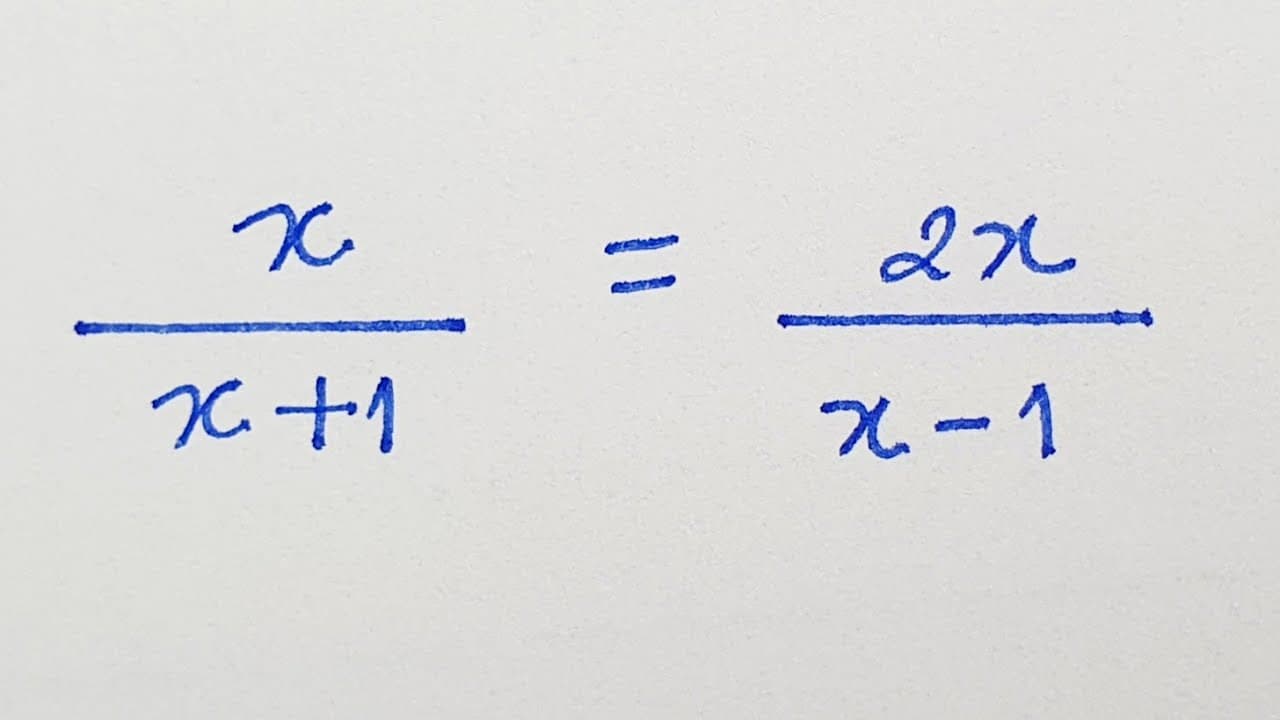 x/(x+1) = 2x/(x-1)